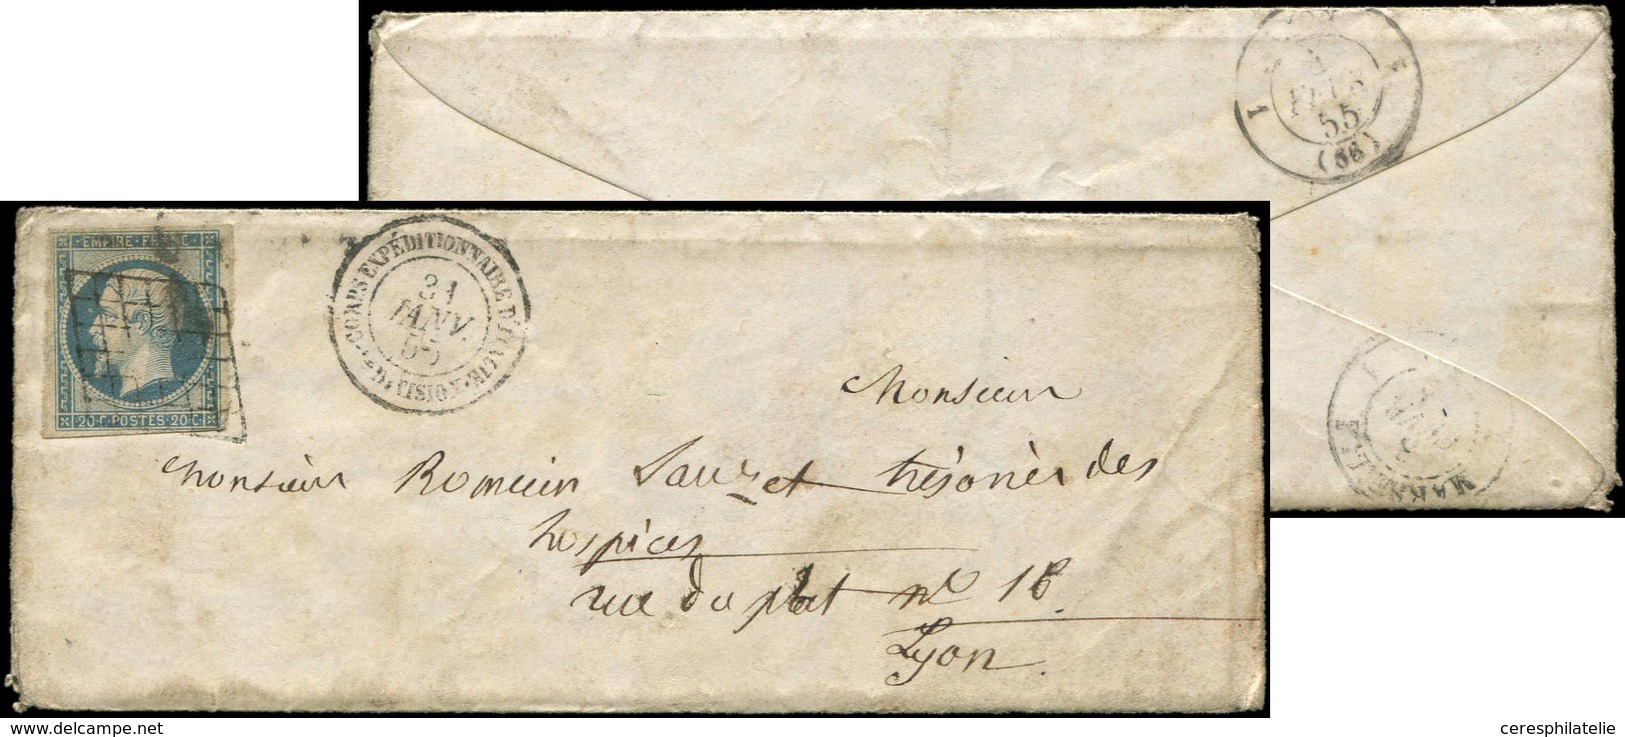 1
FEVR
55
(68)
EMPIRE FRANC
20·C·POSTES·20·C
CORPS EXPÉDITIONNAIRE D'ITALIE
31
JANV.
55
DIVISION
MARSEILLE
Monsieur
Monsieur Romieux Sauzet trésorier des
hospices
rue du plat n° 18
Lyon
www.delcampe.net
ceresphilatelie